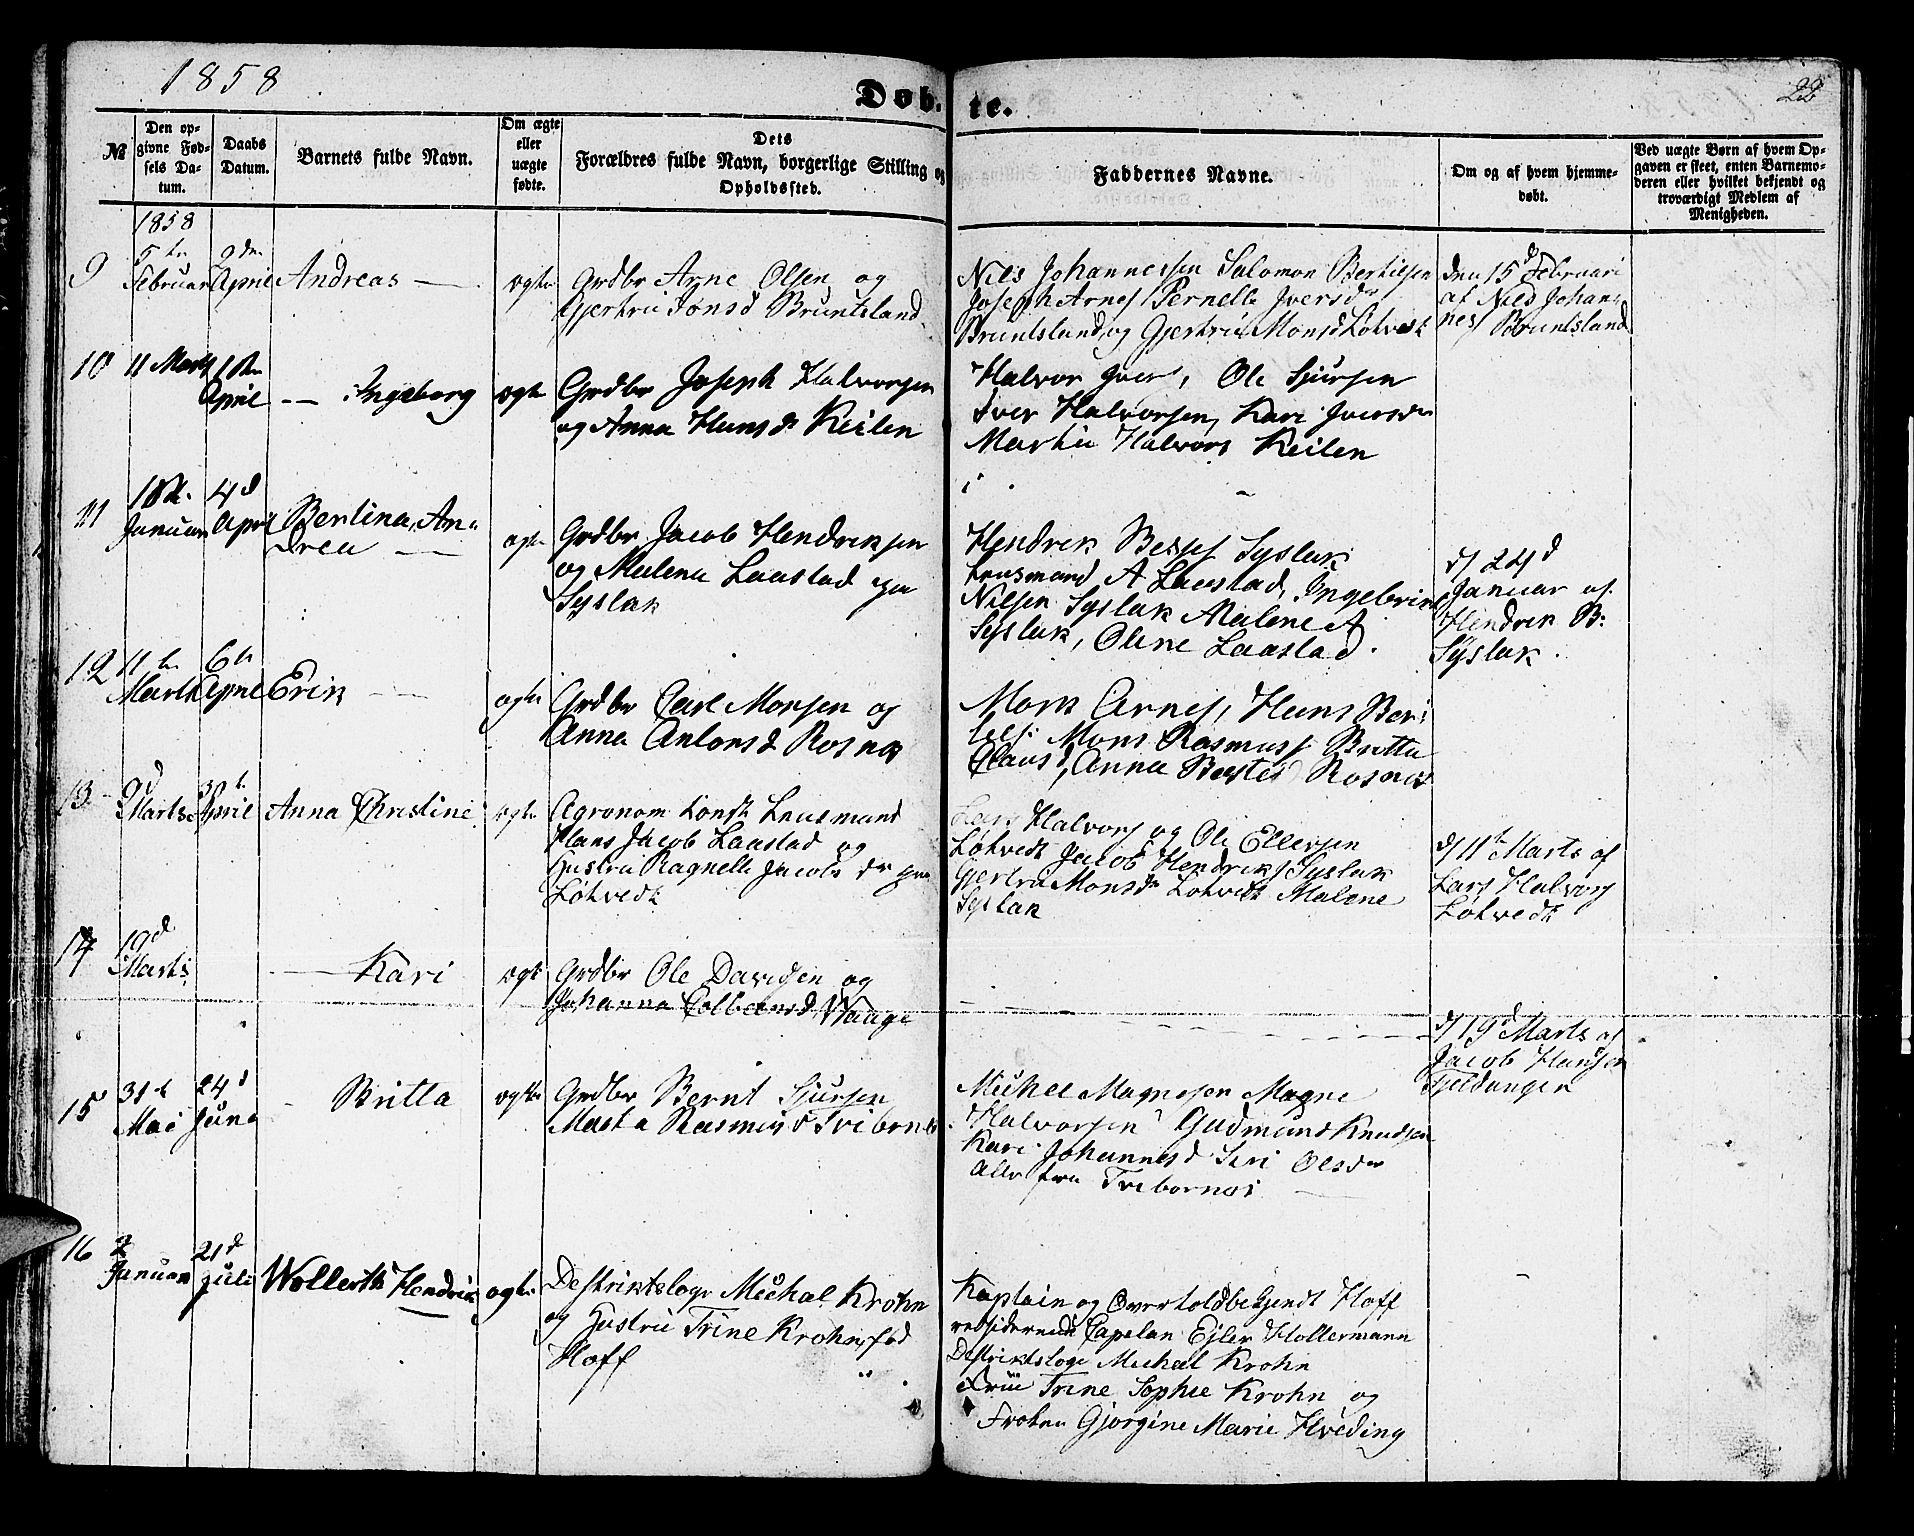 1858
Døb-
te.
22
№
Den op-
givne Fød-
sels Da-
tum.
Daabs
Datum.
Barnets fulde Navn.
Om ægte
eller
uægte
fødte.
Dets
Forældres fulde Navn, borgerlige Stilling og
Opholdssted.
Faddernes Navne.
Om og af hvem hjemme-
døbt.
Ved uægte Børn af hvem Op-
gaven er skeet, enten Barnemo-
deren eller hvilket bekjendt og
troværdigt Medlem af
Menigheden.
1858
9
5te
Februar
2den
April
Andreas
ægte
Grdbr Arne Olsen og
Gjertru Jonsd Bruntsland
Nils Johannessen Salomon Bertilsen
Joseph Arnes Pernelle Iversdr
Bruntsland og Gjertru Monsd Løtvedt
den 15d Februari
af Nils Johan-
nes Bruntsland
10
11 Marts
1ste
April
Ingeborg
ægte
Grdbr Joseph Halvorsen
og Anna Hansd Keilen
Halvor Iver, Ole Sjursen
Iver Halvorsen, Kari Iversdr
Martha Halvors Keilen
11
Januar
4d
April
Bertina, An-
drea
ægte
Grdbr Jacob Hendriksen
og Malena Laastad paa
Syslak
Hendrik Syslak
Lensmand A Laastad, Ingebrikt
Nilsen Syslak Malene A
Syslak, Oline Laastad.
d/ 24d
Januar af
Hendrik B:
Syslak.
12
11te
Marts
6te
April
Erik
ægte
Grdbr Carl Monsen og
Anna Antonsd Rosnæs
Mons Arnes, Hans Ber-
tels: Mons Rasmuss Britta
Clausd, Anna Rosnæs
13
9d
Marts
April
Anna Christine
ægte
Agronom konst Lensmand
Hans Jacob Laastad og
Hustru Ragnelle Jacobsdr paa
Løtvedt
Lars Halvors og Ole Ellersen
Løtvedt Jacob Hendriks Syslak
Gjertru Monsdr Løtvedt Malene
Syslak
d/ 11te Marts af
Lars Halvors
Løtvedt
14
19d
Marts
Kari
ægte
Grdbr Ole Davidsen og
Johanna Colbensd, Waage
d/ 19d Marts af
Jacob Hansen
Fjeldanger
15
31te
Mai
24d
Juni
Britta
ægte
Grdbr Bernt Sjursen
Marta Rasmusd Tvibernæs
Michel Magnesen Magne
Halvorsen Gudmund Knudsen
Kari Johannesd Siri Olsdr
Alle fra Tvibornæs
16
2
Januar
21d
Juli
Wollerth Hendrik
ægte
Destriktslæge Michal Krohn
og Hustru Trine Krohn, fød
Hoff
Kaptain og Overtoldbetjendt Hoff
residerende Capelan Ejler Hollermann
Destriktslæge Michal Krohn
Frue Trine Sophie Krohn og
Frøken Gjørgine Marie Hveding